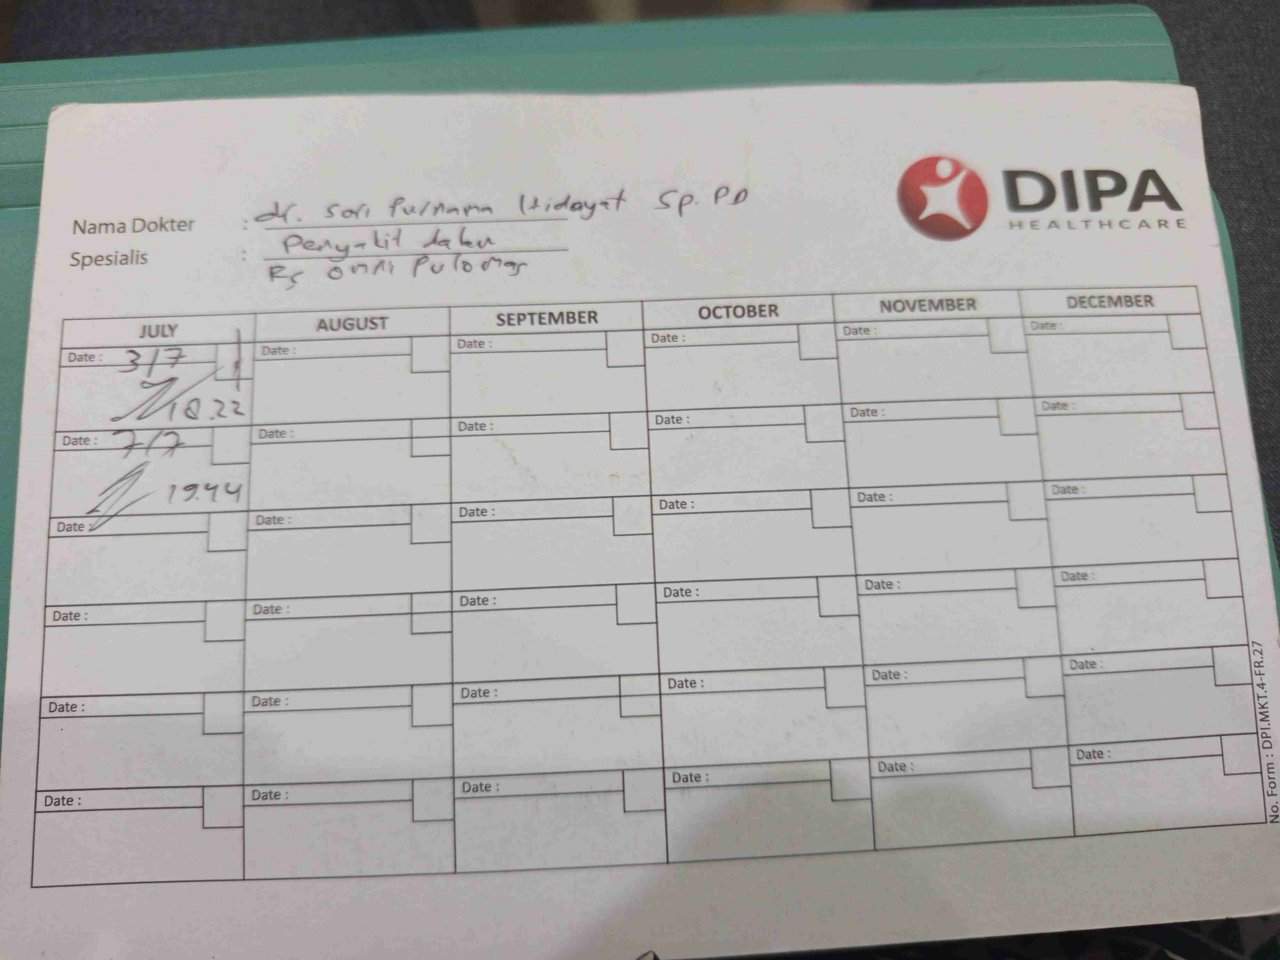 DIPA
HEALTHCARE
Nama Dokter : dr. Sori Purnama Hidayat Sp. PD
Spesialis : Penyakit dalam
RS Omni Pulomas
JULY AUGUST SEPTEMBER OCTOBER NOVEMBER DECEMBER
Date : 3/7 Date : Date : Date : Date : Date :
18.22
Date : 7/7 Date : Date : Date : Date : Date :
19.44
Date : Date : Date : Date : Date : Date :
Date : Date : Date : Date : Date : Date :
Date : Date : Date : Date : Date : Date :
Date : Date : Date : Date : Date : Date :
No. Form : DPI.MKT.4-FR.27